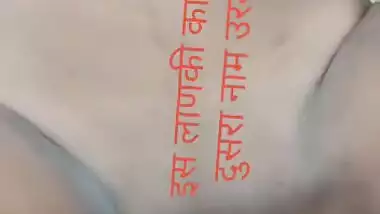 इस लाणकी का
दुसरा नाम उर